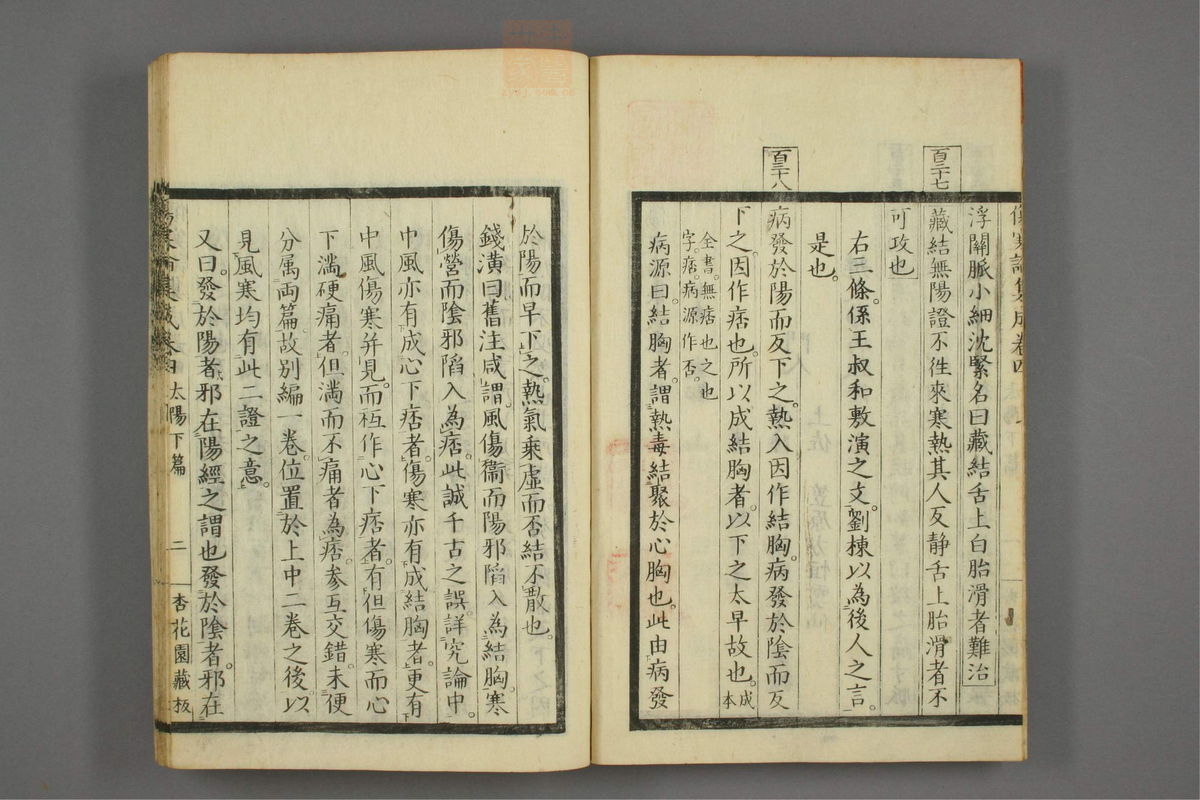 百三十七
浮關脈小細沈緊名曰藏結舌上白胎滑者難治
藏結無陽證不徃來寒熱其人反静舌上胎滑者不
可攻也
右三條係王叔和敷演之文劉棟以為後人之言
是也
百三十八
病發於陽而反下之熱入因作結胸病發於陰而反
下之因作痞也所以成結胸者以下之太早故也成本
全書無痞也之也
字痞病源作否
病源曰結胸者謂熱毒結聚於心胸也此由病發
於陽而早下之熱氣乘虛而否結不散也
錢潢曰舊注咸謂風傷衞而陽邪陷入為結胸寒
傷營而陰邪陷入為痞此誠千古之誤詳究論中
中風亦有成心下痞者傷寒亦有成結胸者更有
中風傷寒并見而柢作心下痞者有但傷寒而心
下滿硬痛者但滿而不痛者為痞參互交錯未便
分属両篇故別編一卷位置於上中二卷之後以
見風寒均有此二證之意
又曰發於陽者邪在陽經之謂也發於陰者邪在
傷寒論集成卷四 太陽下篇 二 杏花園藏板